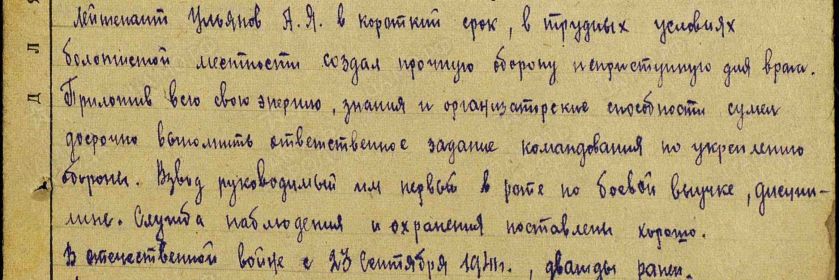 Лейтенант Ульянов А.Я. в короткий срок, в трудных условиях
болотистой местности создал прочную оборону неприступную для врага.
Приложив всю свою энергию, знания и организаторские способности сумел
досрочно выполнить ответственное задание командования по укреплению
обороны. Взвод руководимый им первый в роте по боевой выучке, дисцип-
лине. Служба наблюдения и охранения поставлены хорошо.
В отечественной войне с 23 Сентября 1941г., дважды ранен.
Д Л